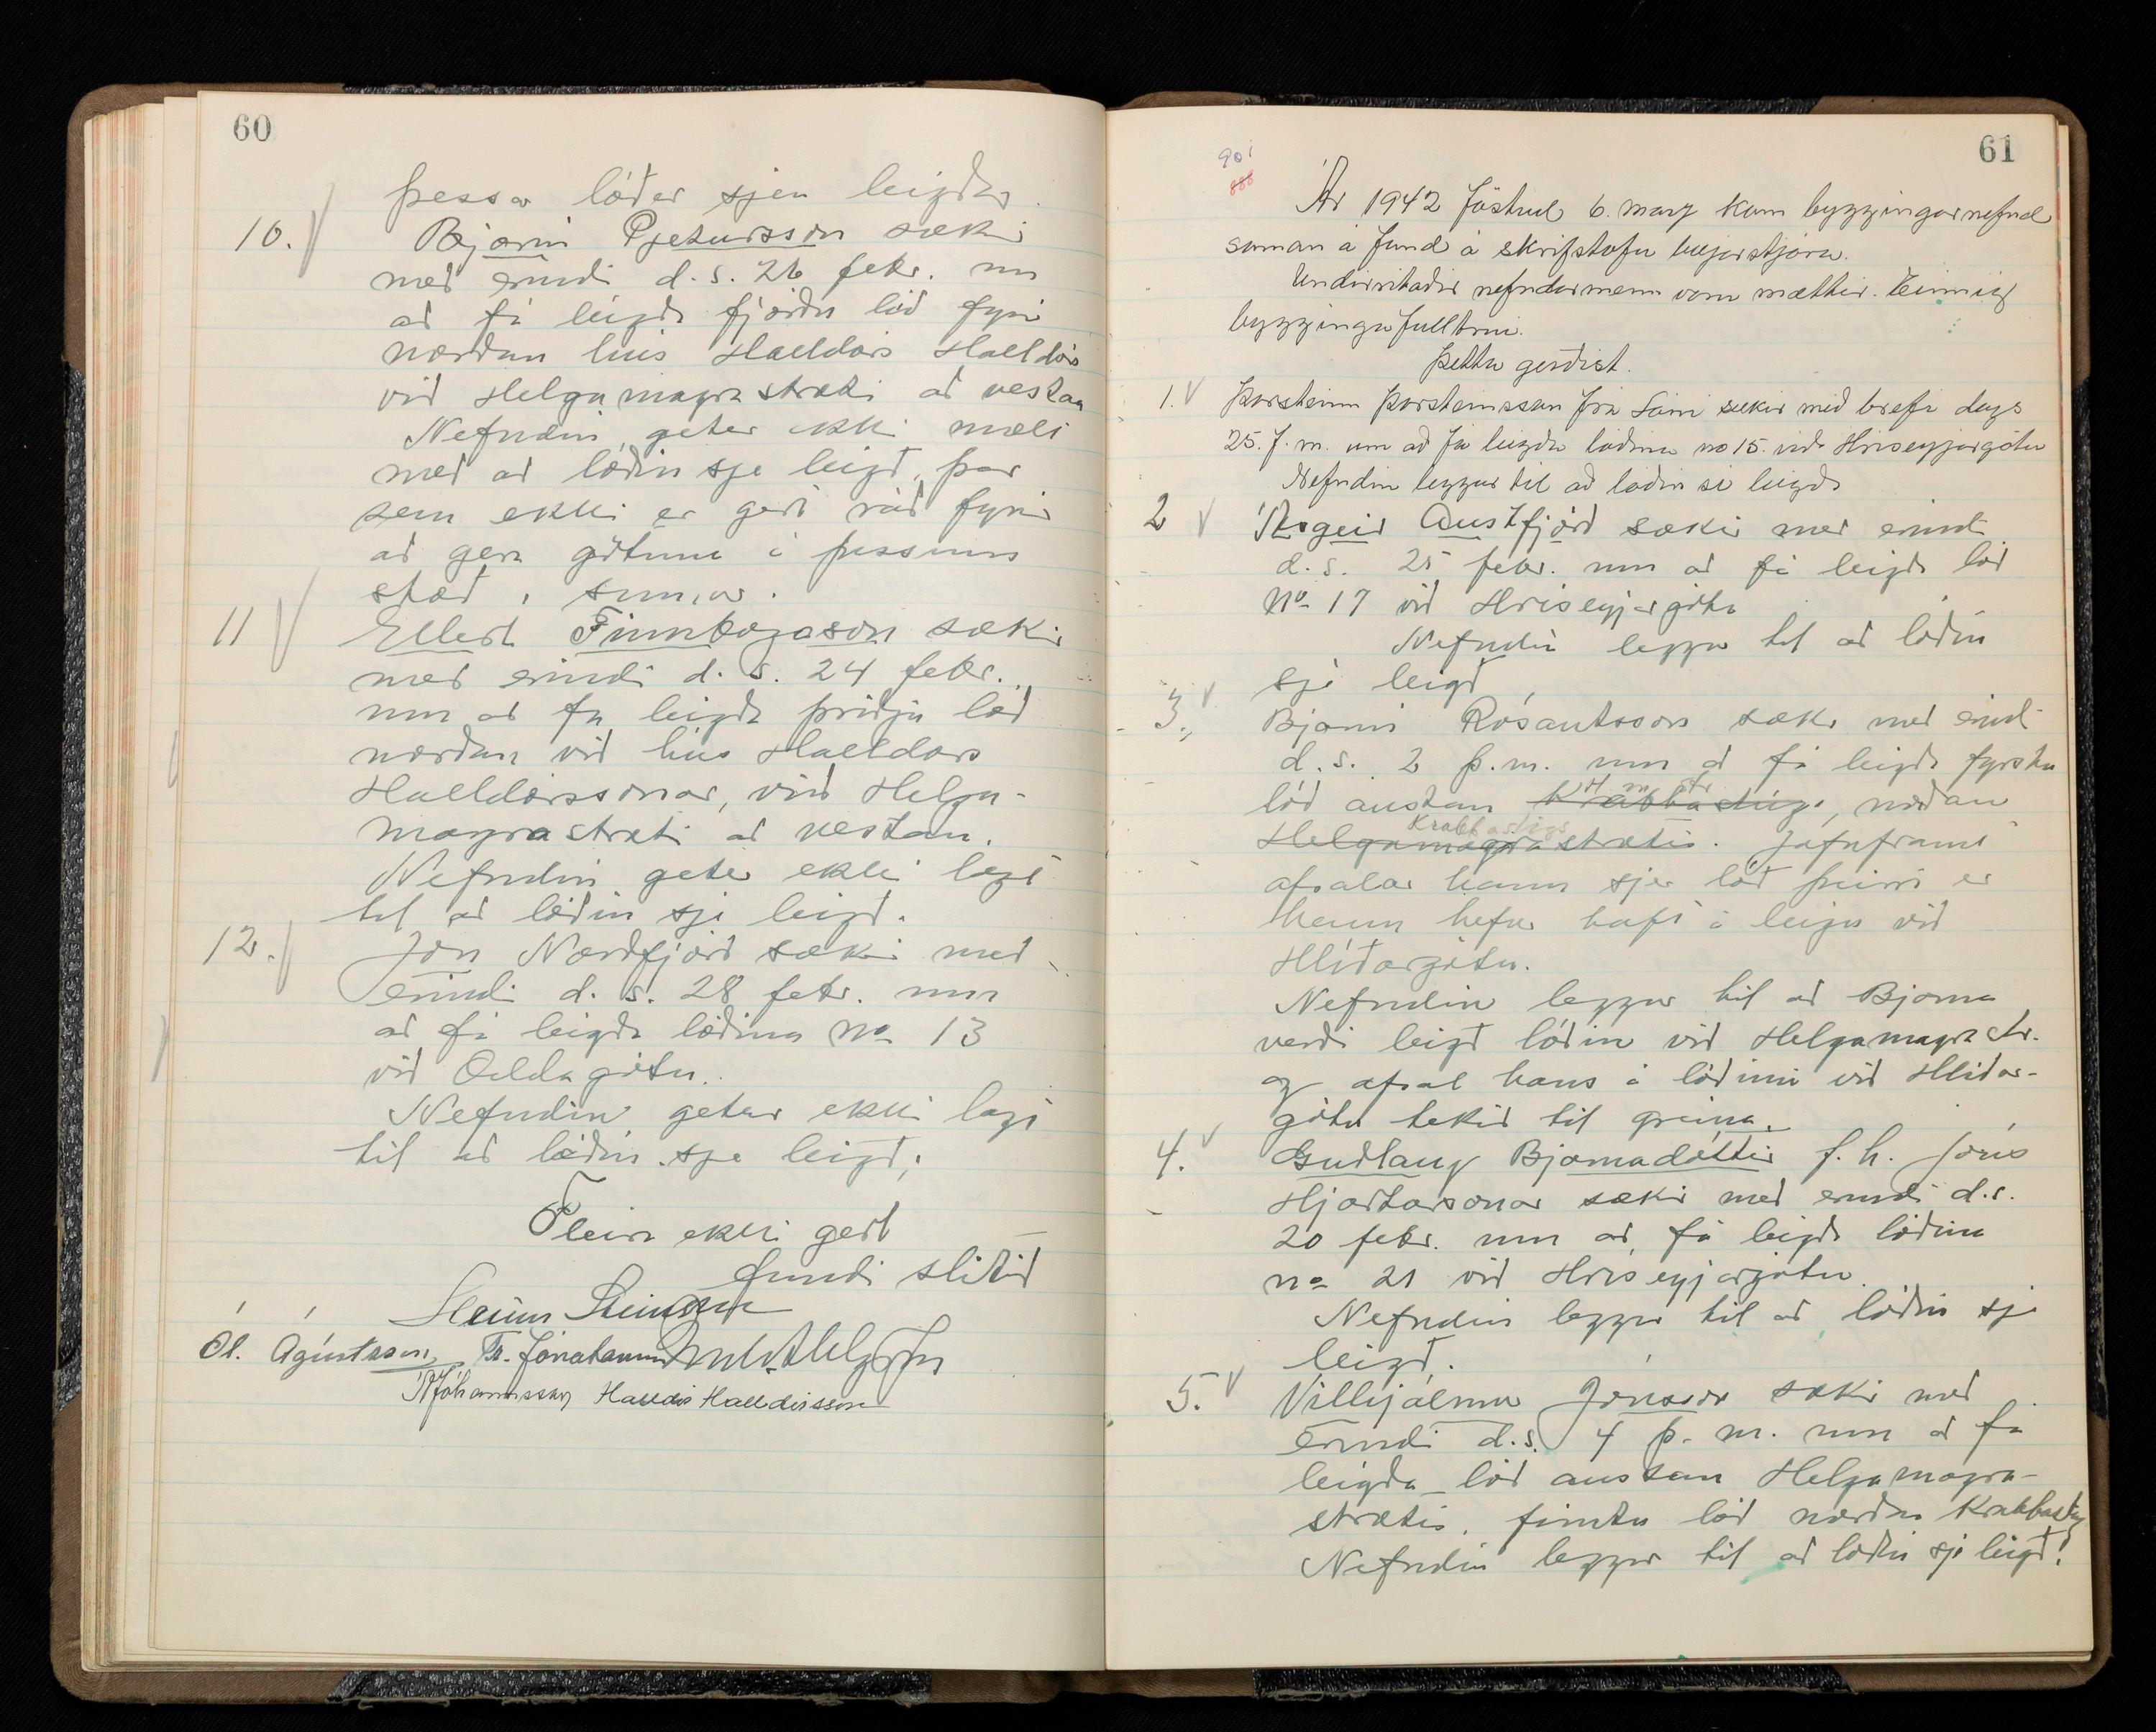 60
þessar lóðir sjeu leigðar.
10. Bjarni Pjetursson sækir
með erindi d. s. 26 febr. um
að fá leigða fjórðu lóð fyrir
norðan hús Halldórs Halldórs
við Helgamagrastræti að vestan
Nefndin getur ekki mælt
með að lóðin sje leigð, þar
sem ekki er gert ráð fyrir
að gera götuna á þessum
stað í sumar.
11 Ellert Finnbogason sækir
með erindi d. s. 24 febr.
um að fá leigða þriðju lóð
norðan við hús Halldórs
Halldórssonar, við Helga-
magrastræti að vestan.
Nefndin getur ekki lagt
til að lóðin sje leigð.
12. Jón Norðfjörð sækir með
erindi d. s. 28 febr. um
að fá leigða lóðina No 13
við Oddagötu.
Nefndin getur ekki lagt
til að lóðin sje leigð.
Fleira ekki gert
fundi slitið
Steinn Steinsen
Ól. Ágústsson Tr. Jónatansson
Jóhannsson Halldór Halldórsson
61
901
888
Ár 1942 föstud 6. marz kom byggingarnefnd
saman á fund á skrifstofu bæjarstjóra.
Undirritaðir nefndarmenn voru mættir. Einnig
byggingafulltrúi.
Þetta gerðist.
1. Þorsteinn Þorsteinsson frá Lóni sækir með brefi dags
25. f. m. um að fá leigða lóðina no 15. við Hríseyjargötu
Nefndin leggur til að lóðin sé leigð
2 Ásgeir Austfjörð sækir með erindi
d. s. 25 febr. um að fá leigða lóð
No 17 við Hríseyjargötu
Nefndin leggur til að lóðin
sjé leigð
3., Bjarni Rósantsson sækir með erindi
d. s. 2 þ.m. um að fá leigða fyrstu
H m str
lóð austan Krabbastígs, norðan
Krabbastígs
Helgamagrastrætis. Jafnframt
afsalar hann sjer lóð þeirri er
hann hefur haft á leigu við
Hlíðargötu.
Nefndin leggur til að Bjarna
verði leigð lóðin við Helgamagrastr.
og afsal hans á lóðinni við Hlíðar-
götu tekið til greina.
4. Guðlaug Bjarnadóttir f. h. Jóns
Hjartarsonar sækir með erindi d.s.
20 febr. um að fá leigða lóðina
no 21 við Hríseyjargötu.
Nefndin leggur til að lóðin sje
leigð.
5. Vilhjálmur Jónsson sækir með
erindi d.s. 4 þ. m. um að fá
leigða lóð austan Helgamagra-
strætis, fimtu lóð norðan Krabbastíg
Nefndin leggur til að lóðin sje leigð.